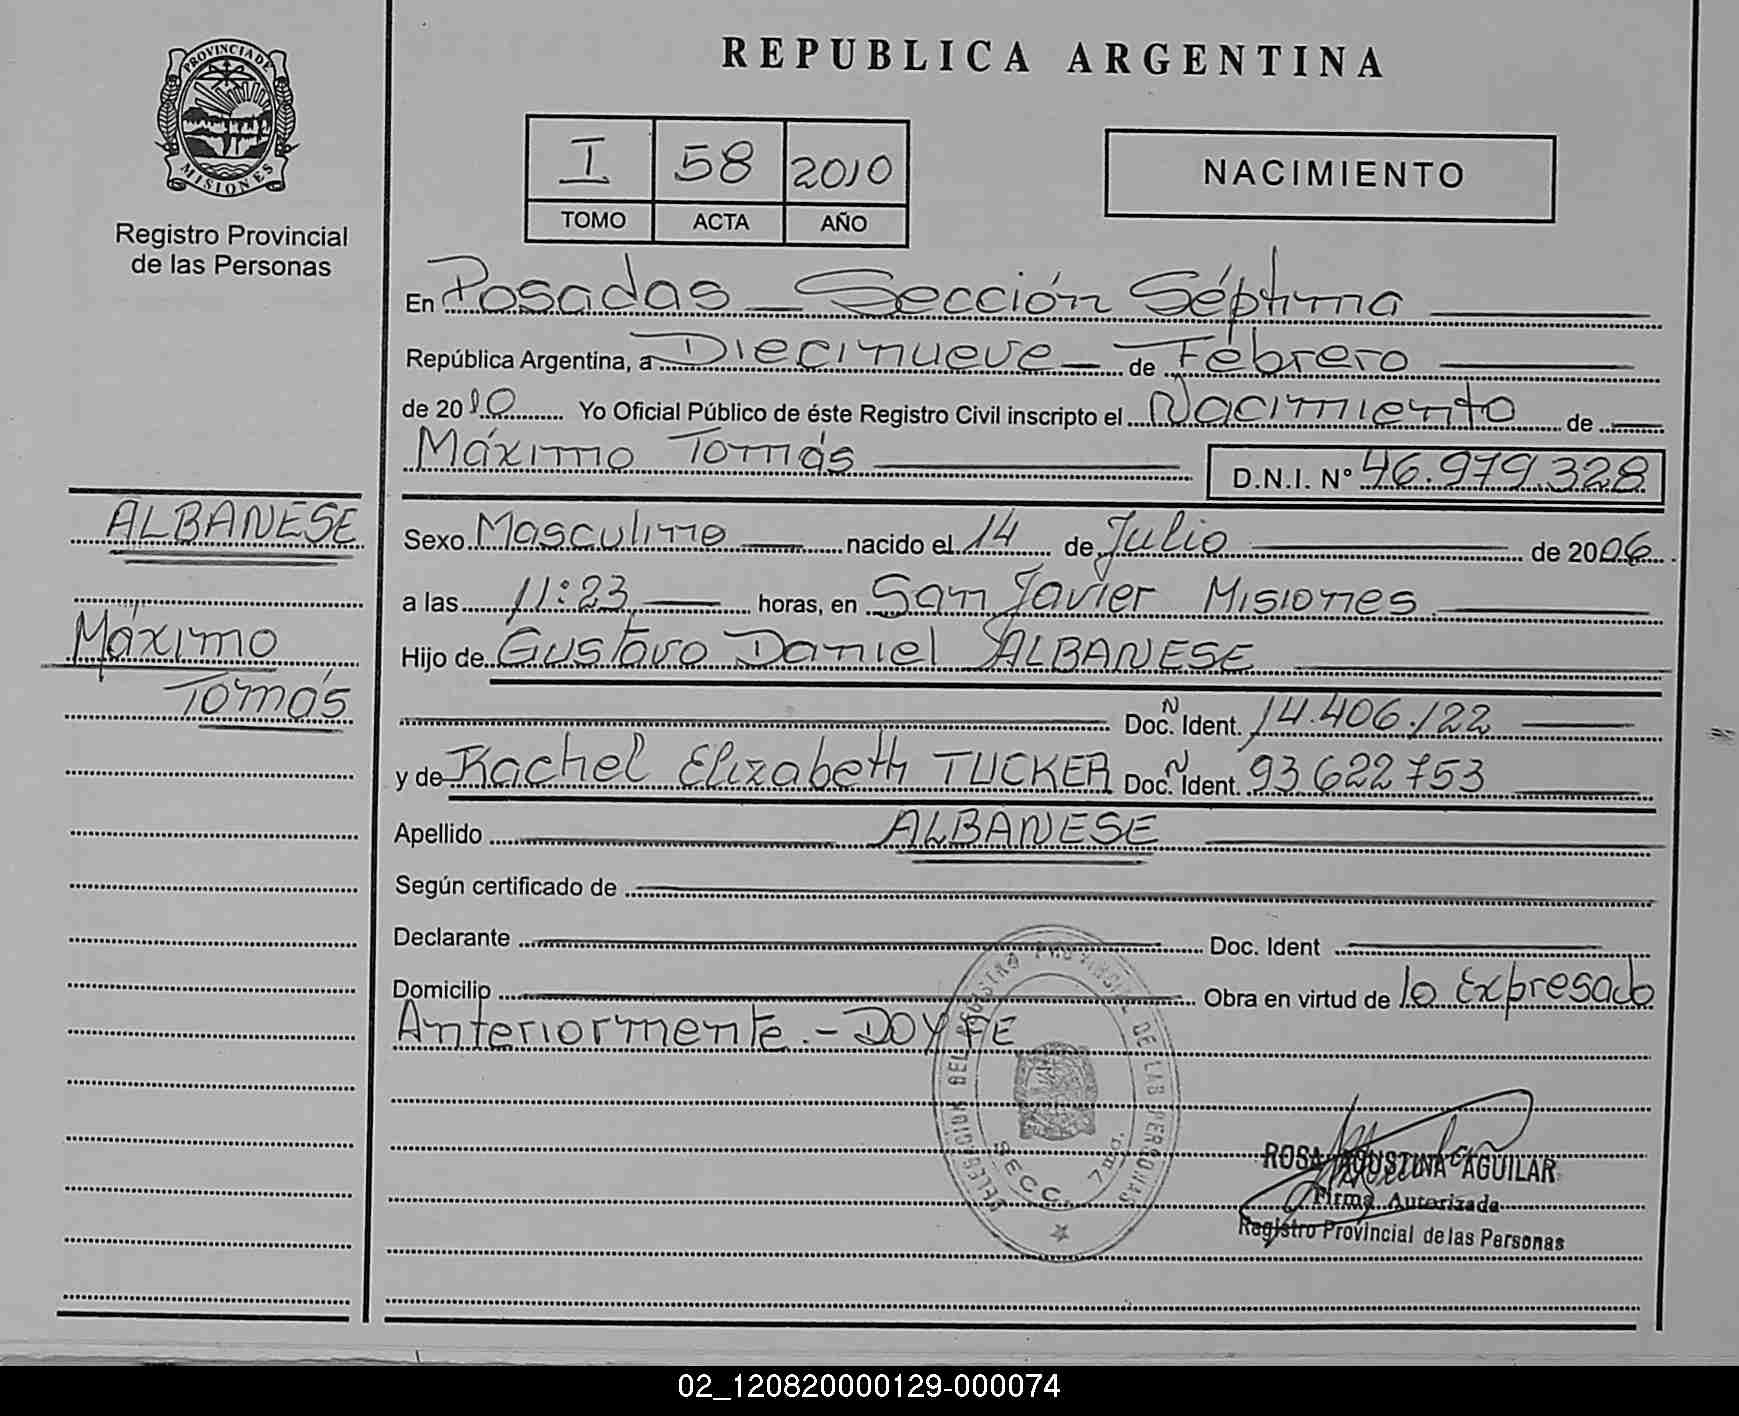 PROVINCIA DE
MISIONES
Registro Provincial
de las Personas
ALBANESE
Máximo
Tomás
REPUBLICA ARGENTINA
I 58 2010
TOMO ACTA AÑO
NACIMIENTO
En Posadas — Sección Séptima
República Argentina, a Diecinueve — de Febrero
de 2010 Yo Oficial Público de éste Registro Civil inscripto el Nacimiento de
Máximo Tomás D.N.I. Nº 46.979.328
Sexo Masculino nacido el 14 de Julio de 2006
a las 11:23 horas, en San Javier Misiones
Hijo de Gustavo Daniel ALBANESE
Doc. N Ident. 14.406.122
y de Rachel Elizabeth TUCKER Doc. N Ident. 93622753
Apellido ALBANESE
Según certificado de
Declarante Doc. Ident
Domicilio Obra en virtud de lo Expresado
Anteriormente.- DOY FE
DELEGACION DEL REGISTRO PROVINCIAL DE LAS PERSONAS
SECC. 7ma.
ROSA AGUSTINA AGUILAR
Firma Autorizada
Registro Provincial de las Personas
02_120820000129-000074